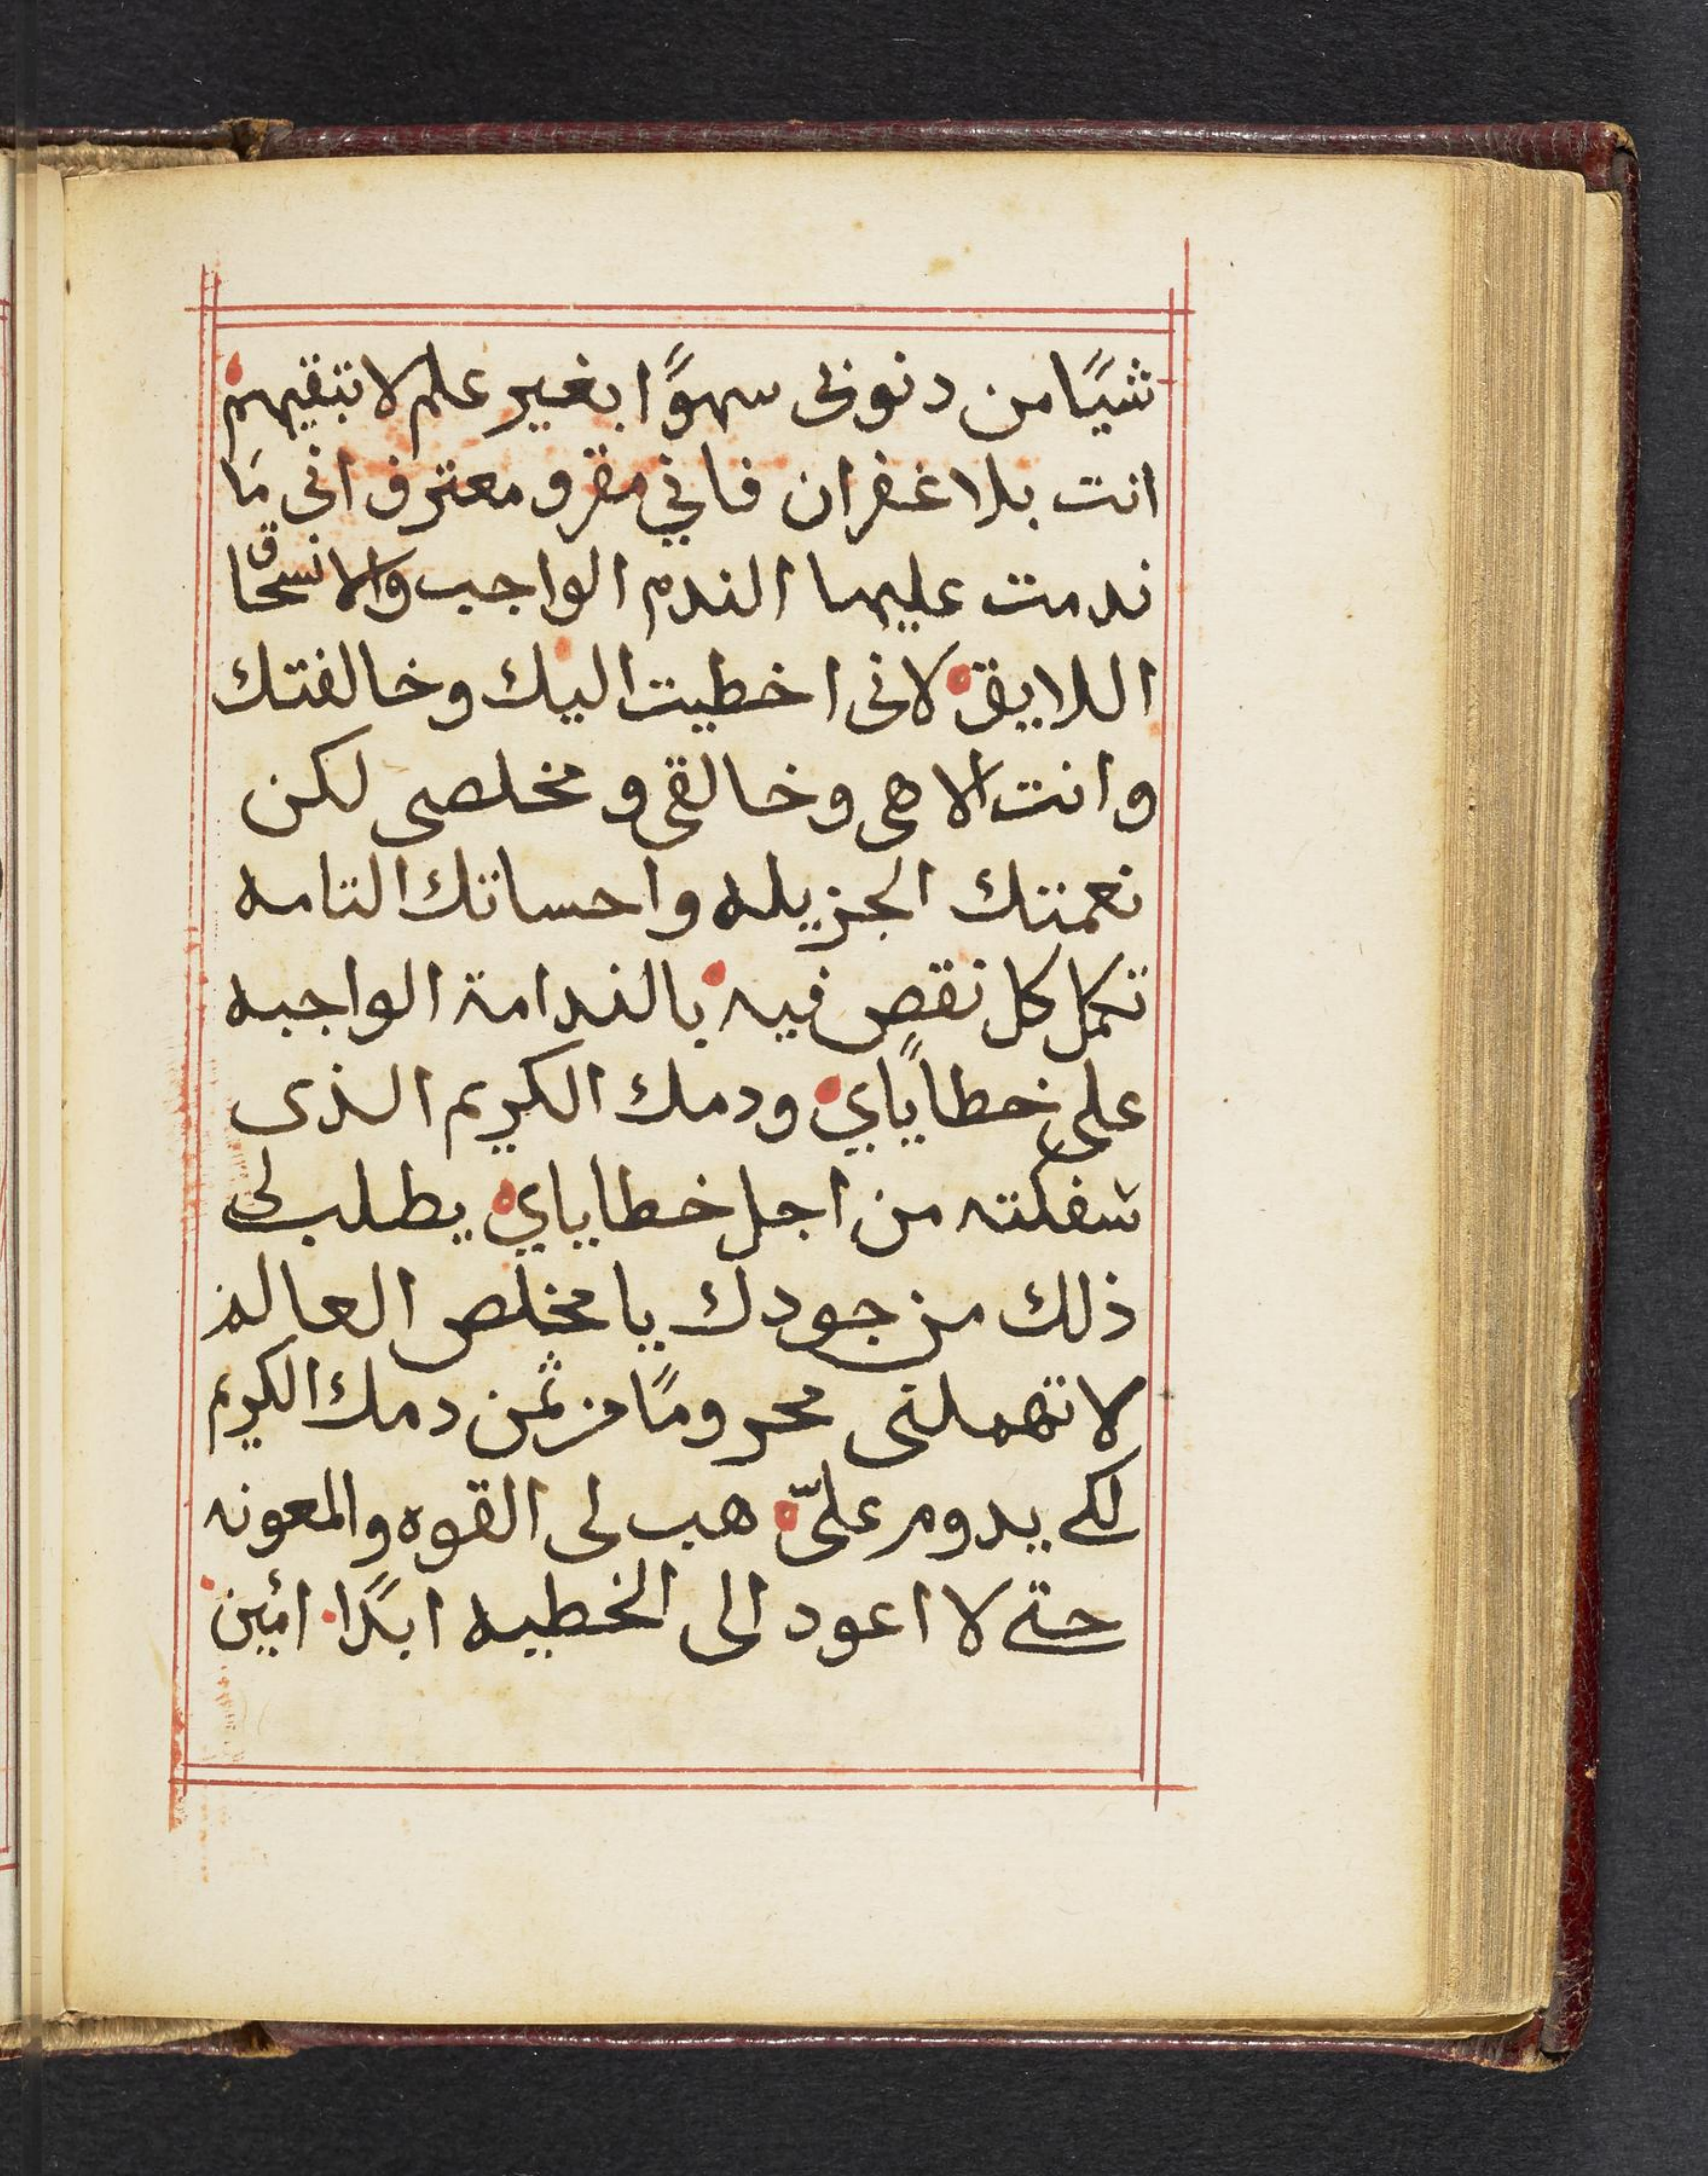 شيًا من دنوبى سهوًا بغير علم لا تبقيهم
انت بلا غفران فاني مقر و معترف انى مَا
ندمت عليها الندم الواجب والانسحاق
اللايق لانى اخطيت اليك وخالفتك
وانت الاهى وخالقى و مخلصى لكن
نعمتك الجزيله واحساتك التامه
تكمل كل نقص فيه بالندامة الواجبه
على خطاياي ودمك الكريم الذى
سفكته من اجل خطاياي يطلب لى
ذلك من جودك يا مخلص العالم
لا تهملنى محرومًا من ثمن دمك الكريم
لكے يدوم علىّ هب لى القوه والمعونه
حتے لا اعود الى الخطيه ابدًا امين